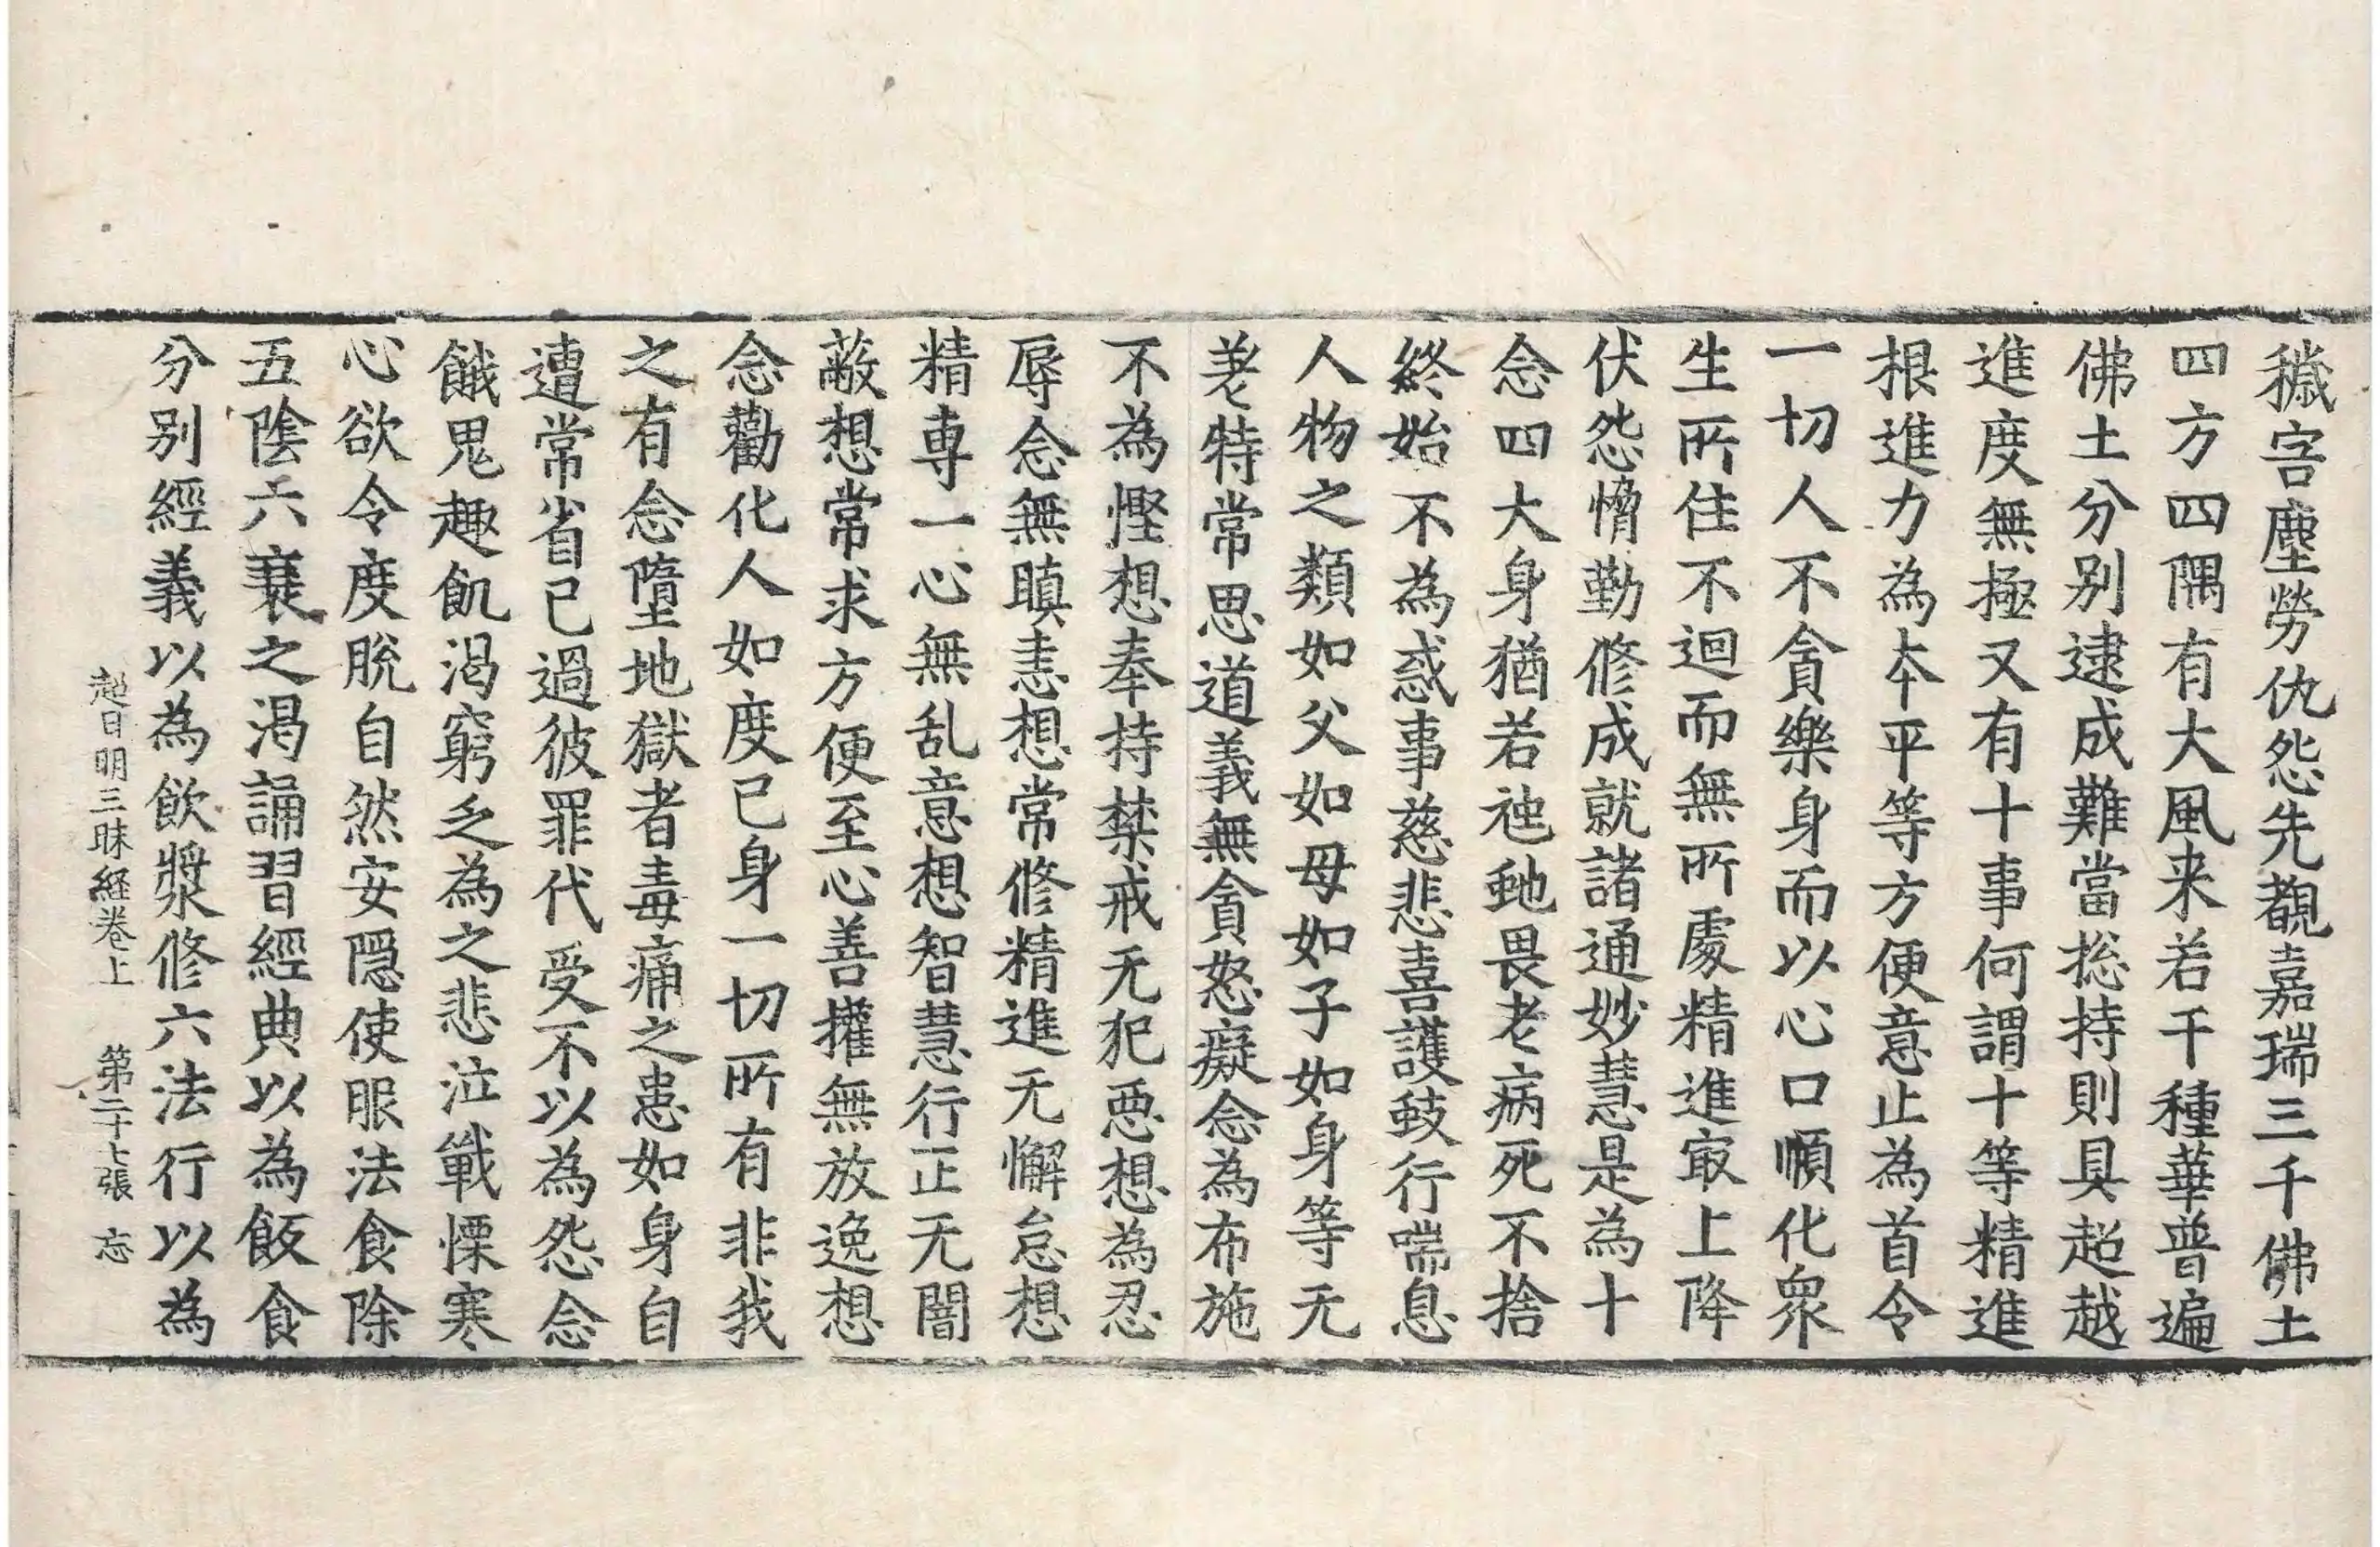 穢害塵勞仇怨先覩嘉瑞三千佛土
四方四隅有大風来若干種華普遍
佛土分别逮成難當捴持則具超越
進度無極又有十事何謂十等精進
根進力為夲平等方便意止為首令
一切人不貪樂身而以心口順化衆
生所住不迴而無所處精進冣上降
伏怨憜勤修成就諸通妙慧是為十
念四大身猶若虵虺畏老病死不捨
終始不為惑事慈悲喜護蚑行喘息
人物之類如父如母如子如身等无
差特常思道義無貪怒癡念為布施
不為慳想奉持禁戒无犯惡想為忍
辱念無瞋恚想常修精進无懈怠想
精専一心無乱意想智慧行正无闇
蔽想常求方便至心善權無放逸想
念勸化人如度已身一切所有非我
之有念墮地獄者毒痛之患如身自
遭常省已過彼罪代受不以為怨念
餓鬼趣飢渴窮乏為之悲泣戰慄寒
心欲令度脫自然安隱使服法食除
五陰六衰之渴誦習經典以為飯食
分别經義以為飲漿修六法行以為
超日明三昧経卷上 第二十七張 忘